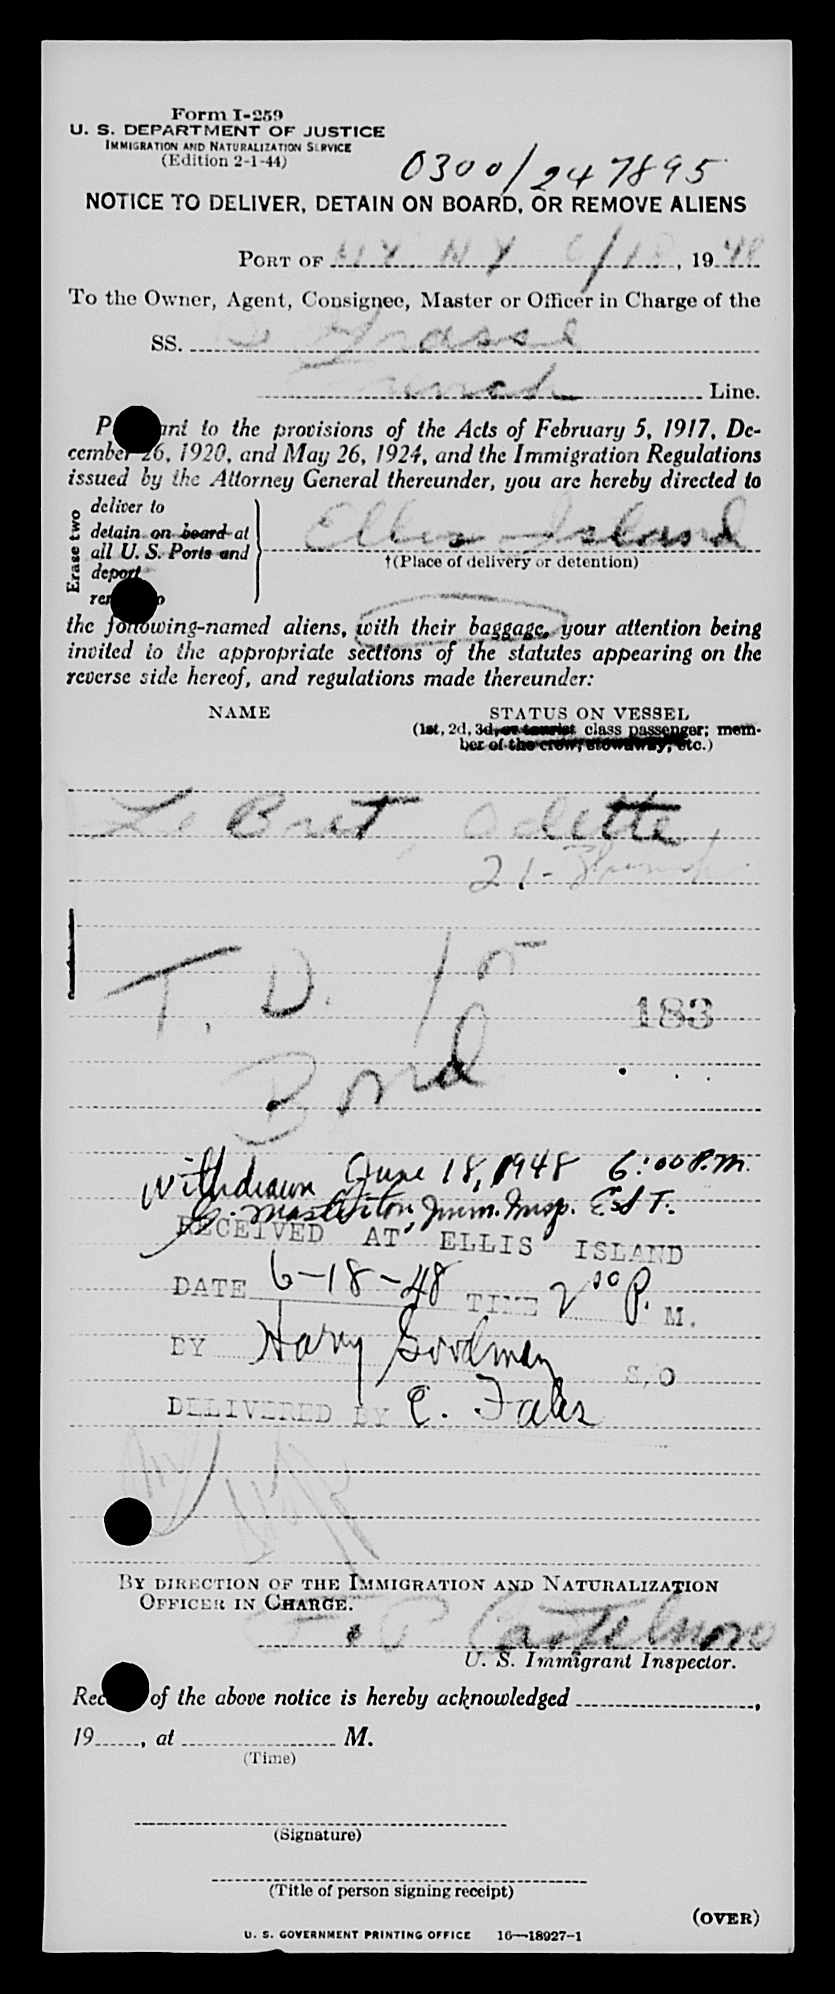 Form I-259
U. S. DEPARTMENT OF JUSTICE
IMMIGRATION AND NATURALIZATION SERVICE
(Edition 2-1-44)
0300/247895
NOTICE TO DELIVER, DETAIN ON BOARD, OR REMOVE ALIENS
PORT OF NY NY 6/18, 1948
To the Owner, Agent, Consignee, Master or Officer in Charge of the
SS. De Grasse
French Line.
P ant to the provisions of the Acts of February 5, 1917, De-
cember 26, 1920, and May 26, 1924, and the Immigration Regulations
issued by the Attorney General thereunder, you are hereby directed to
Erase two
deliver to
detain on board at
all U. S. Ports and
deport
re o
Ellis Island
†(Place of delivery or detention)
the following-named aliens, with their baggage, your attention being
invited to the appropriate sections of the statutes appearing on the
reverse side hereof, and regulations made thereunder:
NAME STATUS ON VESSEL
(1st, 2d, 3d, or tourist class passenger; mem-
ber of the crew, stowaway, etc.)
Le Bret, Odette
21- French
T. D. for
183
Bond
Withdrawn June 18, 1948 6:00 P.M.
G. Masterton, Imm. Insp. Est T.
RECEIVED AT ELLIS ISLAND
DATE 6-18-48 TIME 2 00 P. M.
BY Harry Goodman S/O
DELIVERED BY C. Fales
BY DIRECTION OF THE IMMIGRATION AND NATURALIZATION
OFFICER IN CHARGE.
P Castelnovo
U. S. Immigrant Inspector.
Rec of the above notice is hereby acknowledged ,
19 , at M.
(Time)
(Signature)
(Title of person signing receipt)
(OVER)
U. S. GOVERNMENT PRINTING OFFICE 16—18927-1